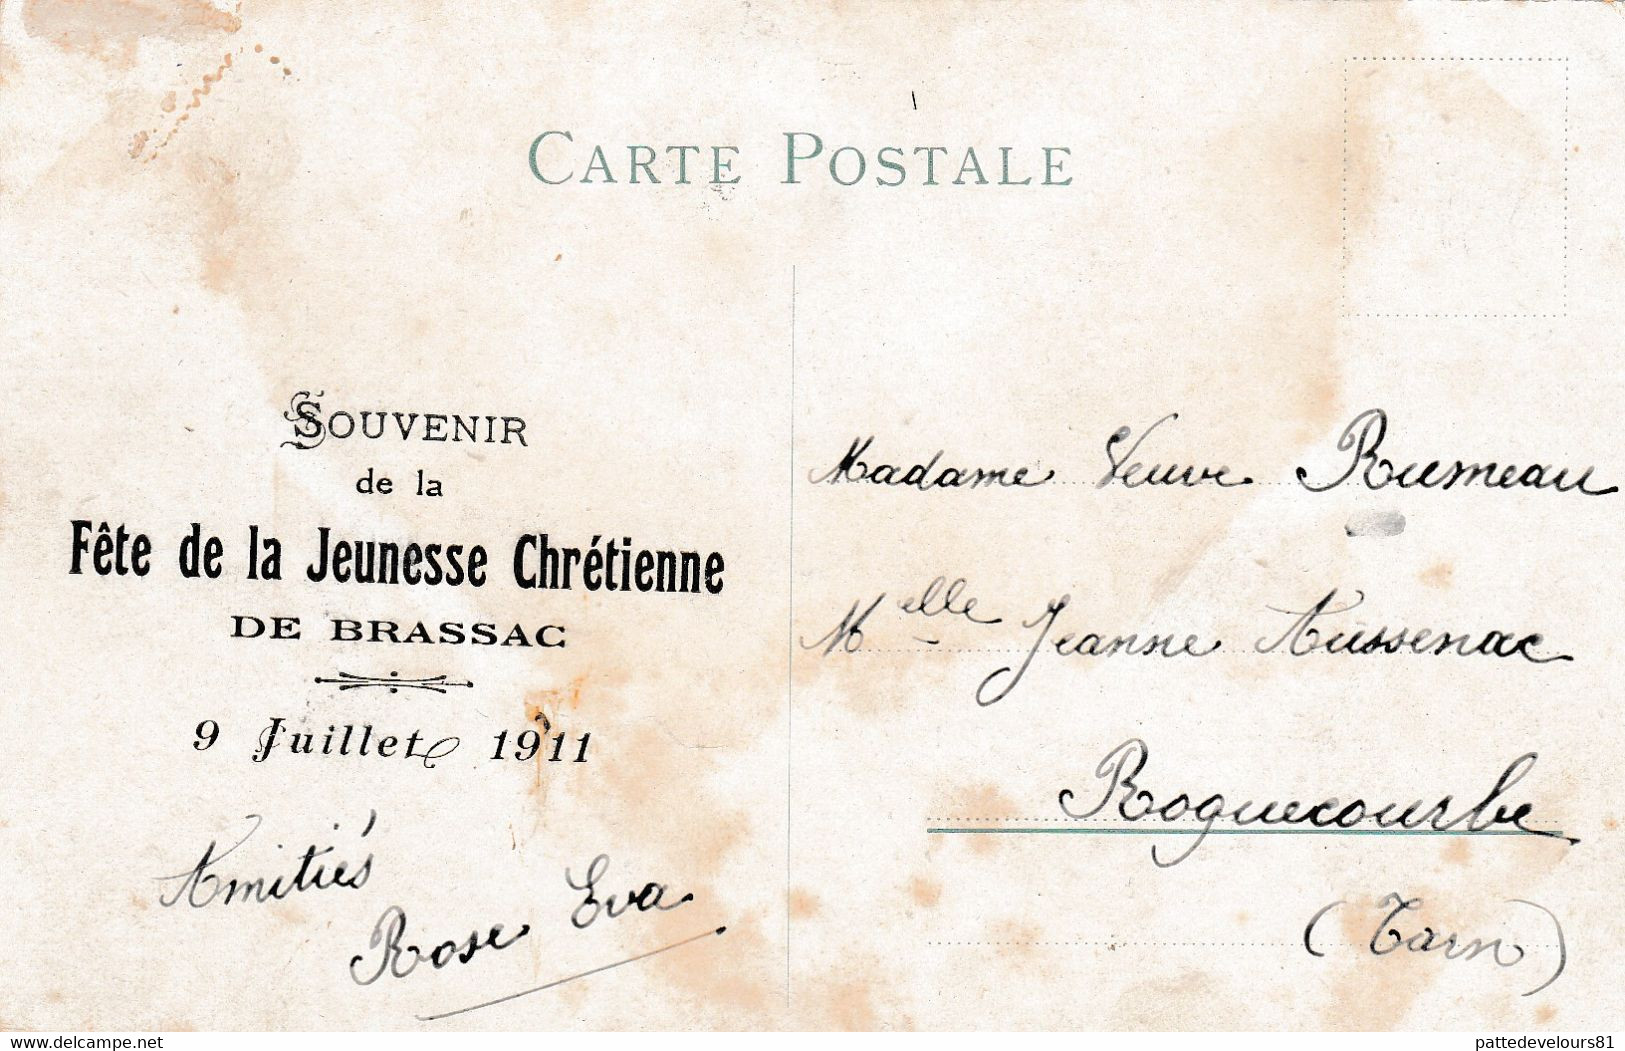 CARTE POSTALE
SOUVENIR
de la
Fête de la Jeunesse Chrétienne
DE BRASSAC
9 Juillet 1911
Amitiés
Rose Eva
Madame Veuve Rumeau
Melle Jeanne Aussenac
Roquecourbe
(Tarn)
delcampe.net
pattedevelours81